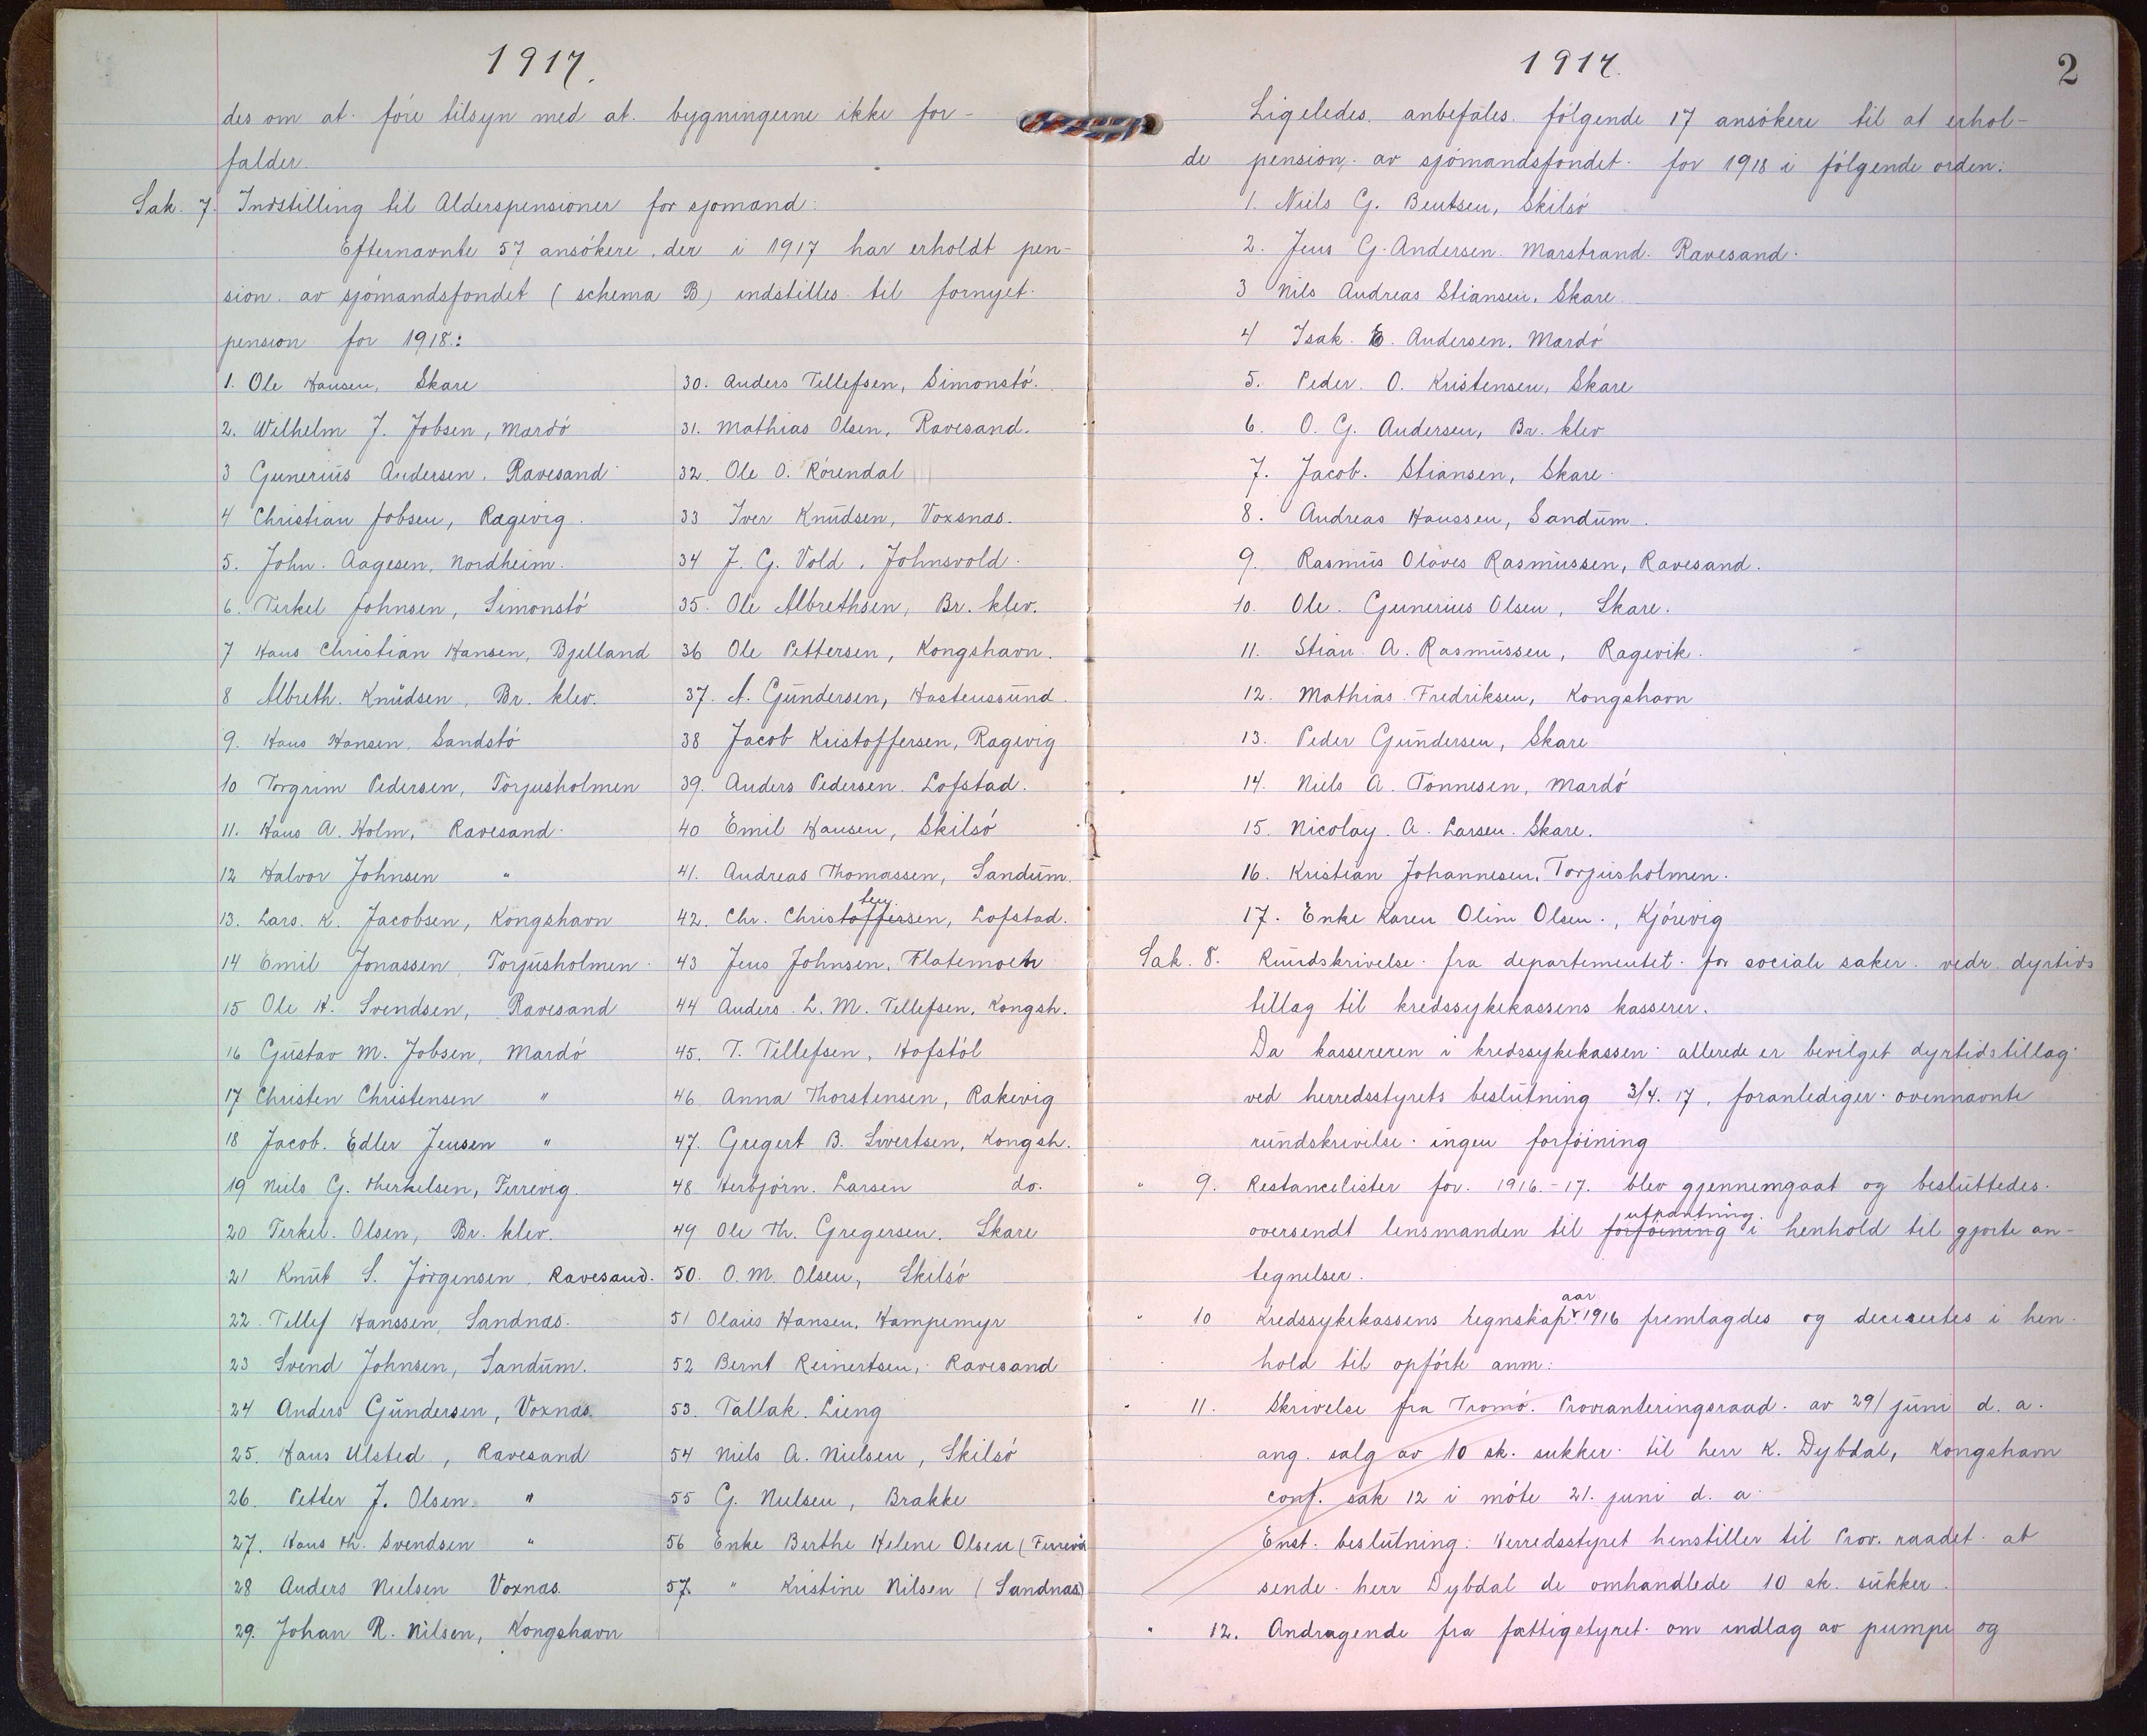 1917.
des om at føre tilsyn med at bygningerne ikke for-
falder.
Sak. 7. Indstilling til Alderspensioner for sjømænd:
Efternævnte 57 ansøkere, der i 1917 har erholdt pen-
sion av sjømandsfondet (schema B) indstilles til fornyet
pension for 1918.:
1. Ole Hansen, Skare
2. Wilhelm J. Jobsen, Mardø
3 Gunerius Andersen, Ravesand
4 Christian Jobsen, Ragevig.
5. John Aagesen, Nordheim.
6. Terkel Johnsen, Simonstø
7 Hans Christian Hansen, Bjelland
8 Albreth. Knudsen, Br. klev.
9. Hans Hansen, Sandstø
10 Torgrim Pedersen, Torjusholmen
11. Hans A. Holm, Ravesand.
12 Halvor Johnsen "
13. Lars. K. Jacobsen, Kongshavn
14 Emil Jonassen, Torjusholmen.
15 Ole H. Svendsen, Ravesand
16 Gustav M. Jobsen, Mardø
17 Christen Christensen "
18 Jacob. Edler Jensen "
19 Niels G. Therkelsen, Ferrevig.
20 Terkel. Olsen, Br. klev.
21 Knut S. Jørgensen, Ravesand.
22. Tellef Hanssen, Sandnæs.
23 Svend Johnsen, Sandum.
24 Anders Gundersen, Voxnæs.
25. Hans Ulsted, Ravesand
26. Petter J. Olsen "
27. Hans Th. Svendsen "
28 Anders Nielsen Voxnæs.
29. Johan R. Nilsen, Kongshavn
30. Anders Tellefsen, Simonstø.
31. Mathias Olsen, Ravesand.
32. Ole O. Rørendal
33 Iver Knudsen, Voxsnæs.
34 J. G. Vold, Johnsvold.
35. Ole Albrethsen, Br. klev.
36 Ole Pettersen, Kongshavn.
37. A. Gundersen, Hastenssund.
38 Jacob Kristoffersen, Ragevig
39. Anders Pedersen. Lofstad.
40 Emil Hansen, Skilsø
41. Andreas Thomassen, Sandum.
42. Chr. Christoffersen, ten Lofstad.
43 Jens Johnsen, Flatemoen
44 Anders. L. M. Tellefsen, Kongsh.
45. T. Tellefsen, Hofstøl
46 Anna Thorstensen, Rakevig
47. Gregert B. Sivertsen, Kongsh.
48 Herbjørn. Larsen do.
49 Ole Th. Gregersen. Skare
50. O. M. Olsen, Skilsø
51 Olaus Hansen, Hampemyr
52 Bernt Reinertsen, Ravesand
53. Tallak. Lieng
54 Niels A. Nielsen, Skilsø
55 G. Nielsen, Brække
56 Enke Berthe Helene Olsen (Ferrevik
57. " Kristine Nilsen (Sandnæs)
1917.
2
Ligeledes anbefales følgende 17 ansøkere til at erhol-
de pension av sjømandsfondet for 1918 i følgende orden:
1. Niels G. Bentsen, Skilsø
2. Jens G. Andersen. Marstrand. Ravesand.
3 Nils Andreas Stiansen, Skare
4 Isak. E. Andersen. Mardø
5. Peder. O. Kristensen, Skare
6. O. G. Andersen, Br. klev
7. Jacob. Stiansen, Skare.
8. Andreas Hanssen, Sandum.
9. Rasmus Olaves Rasmussen, Ravesand.
10. Ole. Gunerius Olsen, Skare.
11. Stian A. Rasmussen, Ragevik.
12. Mathias Fredriksen, Kongshavn
13. Peder Gundersen, Skare
14. Niels A. Tønnesen, Mardø
15. Nicolay. A. Larsen. Skare.
16. Kristian Johannesen, Torjusholmen.
17. Enke Karen Oline Olsen., Kjørevig
Sak. 8. Rundskrivelse fra departementet for sociale saker vedr. dyrtids
tillæg til kredssykekassens kasserer.
Da kassereren i kredssykekassen allerede er bevilget dyrtidstillæg
ved herredsstyrets beslutning 3/4. 17, foranlediger ovennævnte
rundskrivelse ingen forføining
" 9. Restancelister for 1916.-17. blev gjennemgaat og besluttedes
oversendt lensmanden til forføining utpantning. i henhold til gjorte an-
tegnelser.
" 10 Kredssykekassens regnskap aar 1916 fremlagdes og decisertes i hen-
hold til opførte anm:
" 11. Skrivelse fra Tromø. Provianteringsraad av 29/ juni d. a.
ang. salg av 10 sk. sukker til herr K. Dybdal, Kongshavn
conf. sak 12 i møte 21. juni d. a.
Enst. beslutning: Herredsstyret henstiller til Prov. raadet at
sende herr Dybdal de omhandlede 10 sk. sukker.
" 12. Andragende fra fattigstyret om indlæg av pumpe og